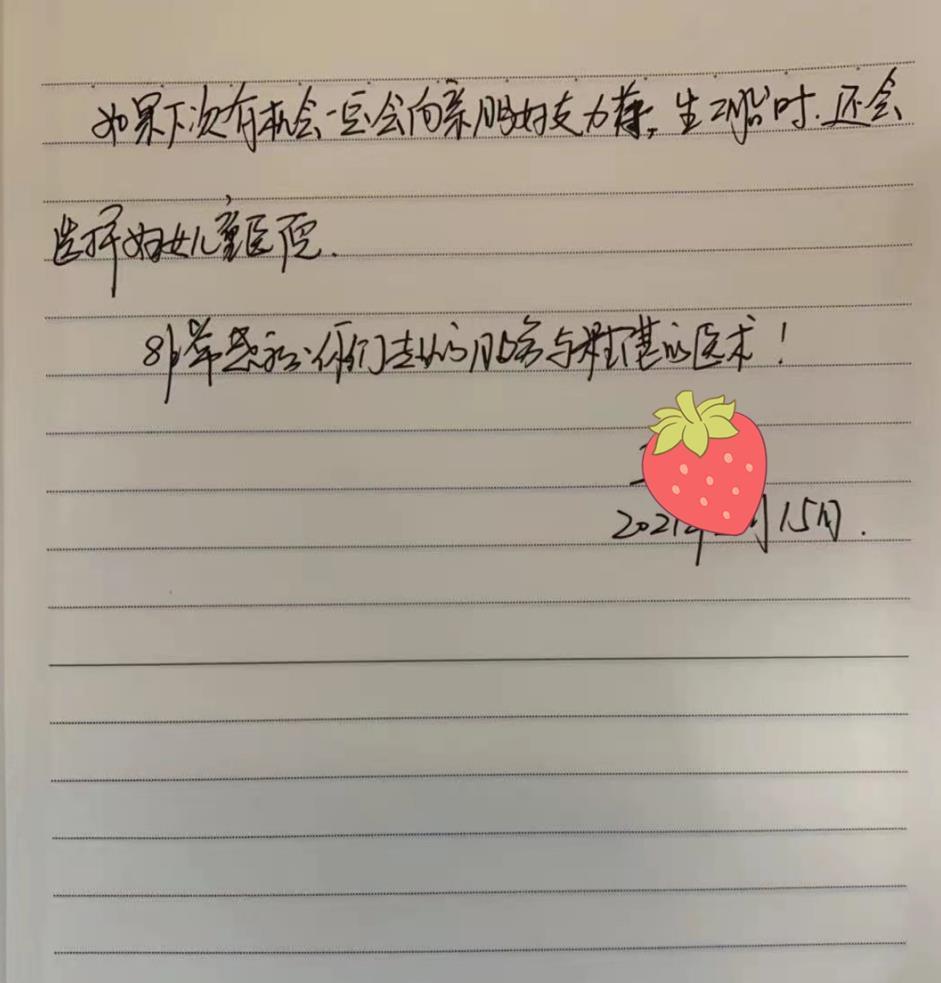 如果下次有机会一定会向亲朋好友力荐,生二胎时.还会
选择妇女儿童医院.
非常感谢你们的服务与精湛的医术!
2021年 月15日.